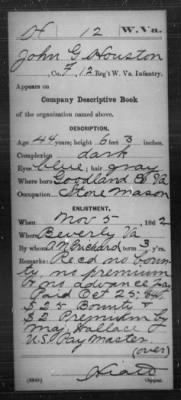 H 12 W. Va.
John G Houston
, Co. F, 12 Reg't W. Va. Infantry.
Appears on
Company Descriptive Book
of the organization named above.
DESCRIPTION.
Age 44 years; height 6 feet 3 inches.
Complexion dark
Eyes blue; hair gray
Where born Goodland Co. Va
Occupation Stone Mason
ENLISTMENT.
When Nov 5, 1862
Where Beverly Va
By whom term 3 y'rs.
Remarks: Recd no boun-
ty, no premium
& no advance
Paid Oct 25,
$25 Bounty &
$2 Premium by
Maj Wallace
U.S. Pay Master
(over)
Hiatt
Copyist.